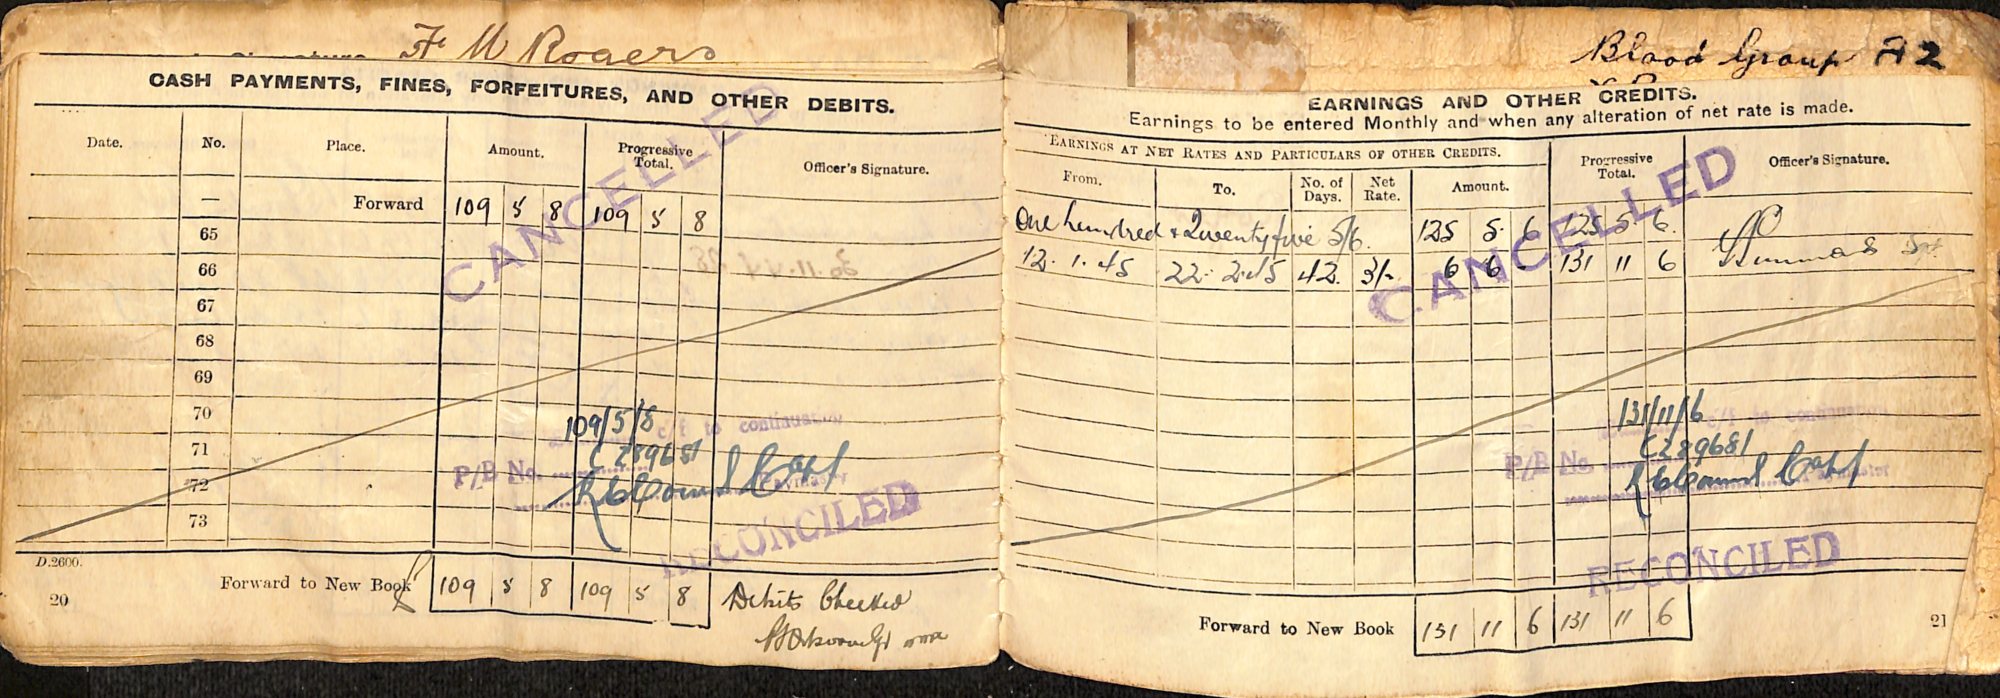 F. M Rogers
CASH PAYMENTS, FINES, FORFEITURES, AND OTHER DEBITS.
Date. No. Place. Amount. Progressive Total. Officer's Signature.
— Forward 109 5 8 109 5 8
65
66
67
68
69
70
71
72
73
CANCELLED
30.11.44
109/5/8
c/f to continuation
P/B No. C 289681
Capt
RECONCILED
D.2600.
Forward to New Book 109 5 8 109 5 8 Debits Checked
20
Blood Group A2
EARNINGS AND OTHER CREDITS.
Earnings to be entered Monthly and when any alteration of net rate is made.
EARNINGS AT NET RATES AND PARTICULARS OF OTHER CREDITS. Progressive Total. Officer's Signature.
From. To. No. of Days. Net Rate. Amount.
One hundred & Twenty five 5/6. 125 5 6 125 5 6
12.1.45 22.2.45 42 3/- 6 6 - 131 11 6
CANCELLED
131/11/6
c/f to continuation
P/B No. C289681
Capt
RECONCILED
Forward to New Book 131 11 6 131 11 6
21